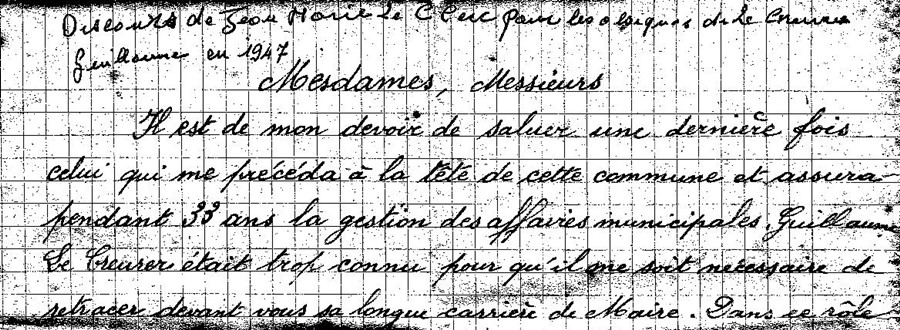 Discours de Jean Marie Le Clerc pour les obsèques de Le Creurer
Guillaume en 1947
Mesdames, Messieurs
Il est de mon devoir de saluer une dernière fois
celui qui me précéda à la tête de cette commune et assura
pendant 33 ans la gestion des affaires municipales. Guillaume
Le Creurer était trop connu pour qu'il me soit nécessaire de
retracer devant vous sa longue carrière de Maire. Dans ce rôle